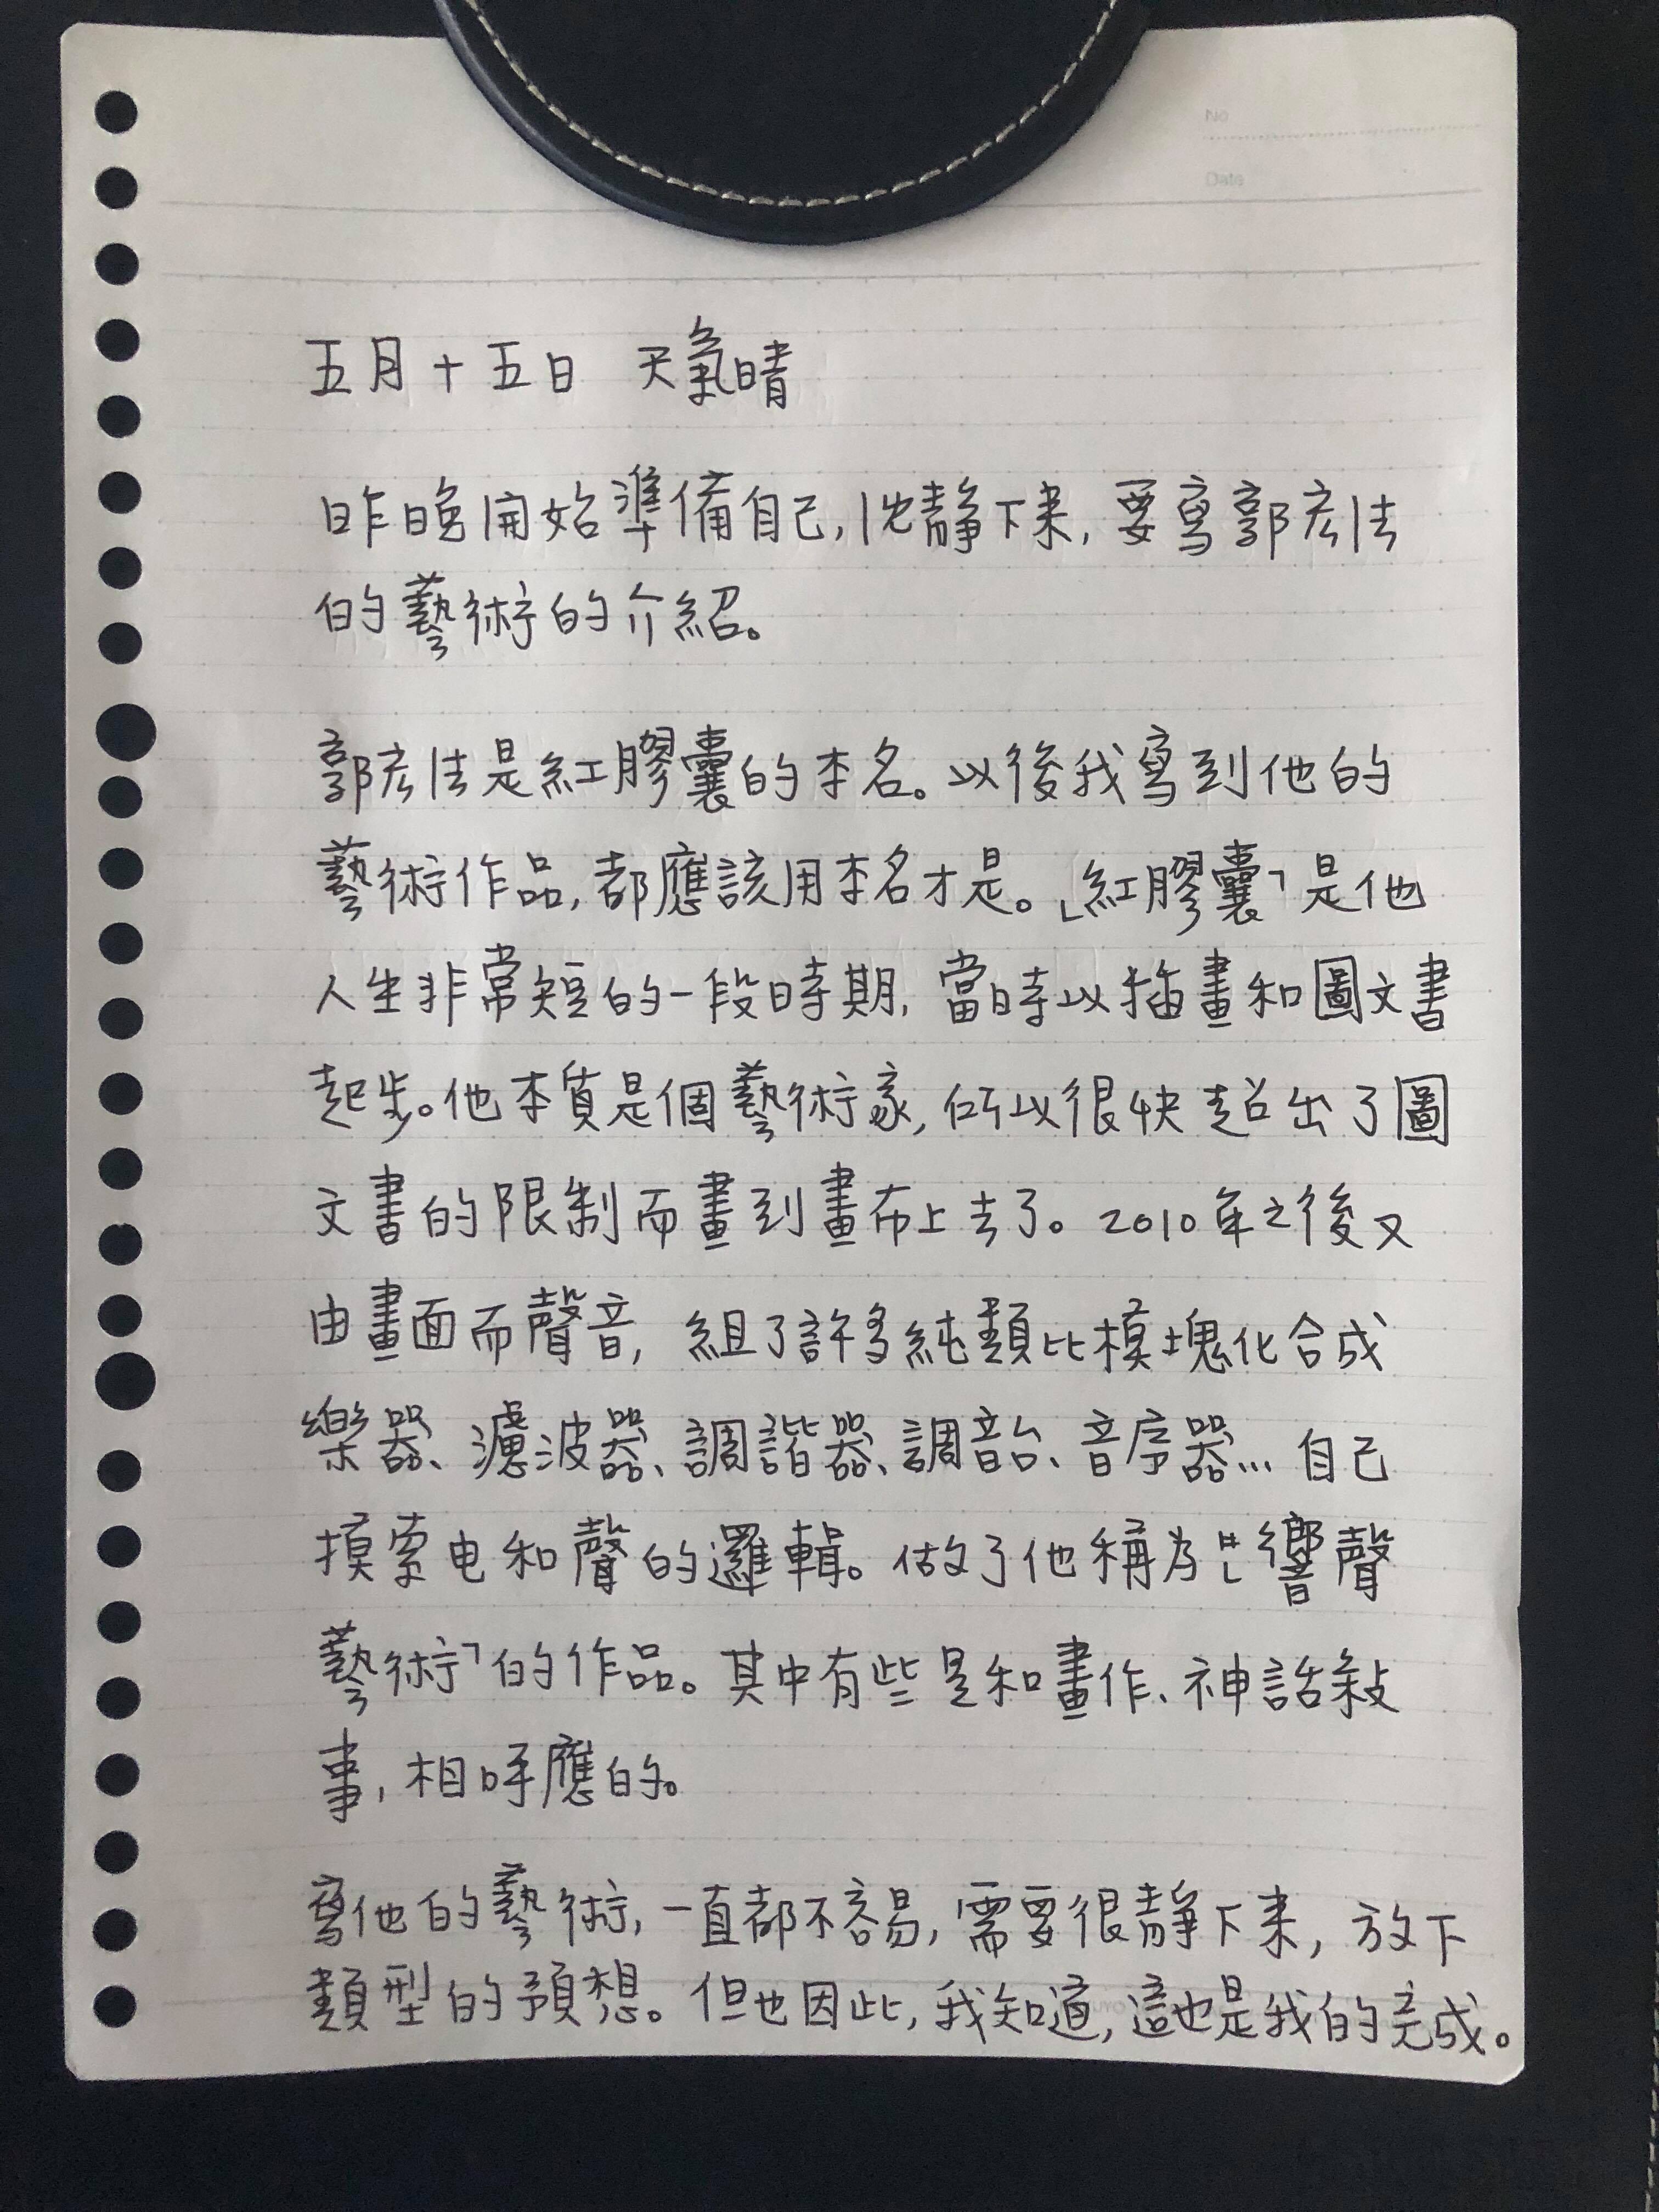 No
Date
五月十五日 天氣晴
昨晚開始準備自己,沈靜下來,要寫郭宏法
的藝術的介紹。
郭宏法是紅膠囊的本名。以後我寫到他的
藝術作品,都應該用本名才是。「紅膠囊」是他
人生非常短的一段時期,當時以插畫和圖文書
起步。他本質是個藝術家,所以很快超出了圖
文書的限制而畫到畫布上去了。2010年之後又
由畫面而聲音,組了許多純類比模塊化合成
樂器、濾波器、調諧器、調音台、音序器...自己
摸索电和聲的邏輯。做了他稱為「響聲
藝術」的作品。其中有些是和畫作、神話敍
事,相呼應的。
寫他的藝術,一直都不容易,需要很靜下來,放下
類型的預想。但也因此,我知道,這也是我的完成。